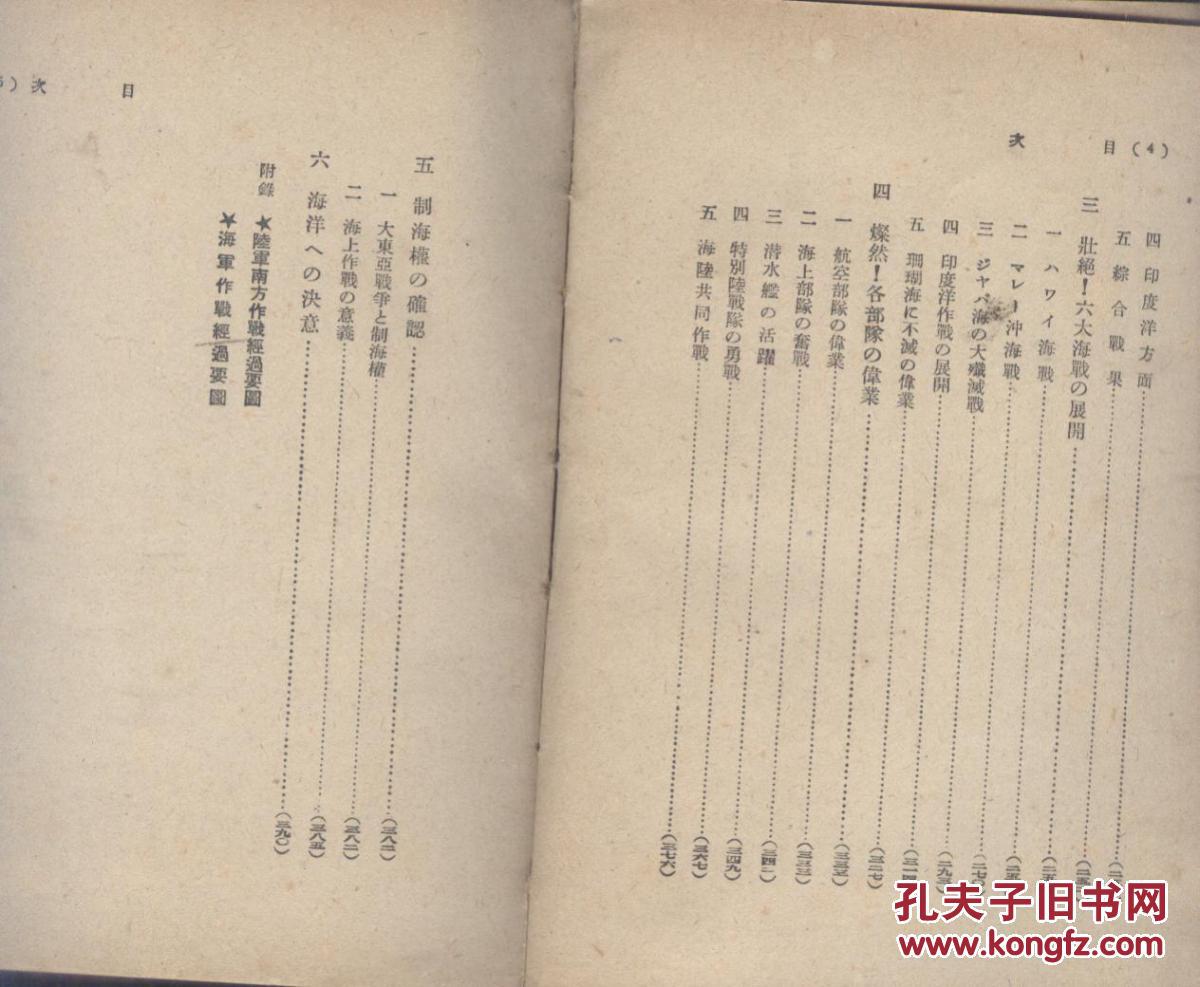 目(4)
次
四 印度洋方面
五 綜合戰果
三 壯絶!六大海戰の展開
一 ハワイ海戰
二 マレー沖海戰……(二七〇
三 ジャバ海の大殲滅戰……(二九三
四 印度洋作戰の展開……(三一四
五 珊瑚海に不滅の偉業……(三二七)
四 燦然!各部隊の偉業
一 航空部隊の偉業……(三三三)
二 海上部隊の奮戰……(三四一)
三 潜水艦の活躍……(三四九)
四 特別陸戰隊の勇戰……(三六七)
五 海陸共同作戰……(三七六)
目
次
五 制海權の確認……(三八二)
一 大東亞戰爭と制海權……(三八二)
二 海上作戰の意義……(三八五)
六 海洋への決意……(三九〇)
附錄 ★陸軍南方作戰經過要圖
★海軍作戰經過要圖
孔夫子旧书网
www.kongfz.com